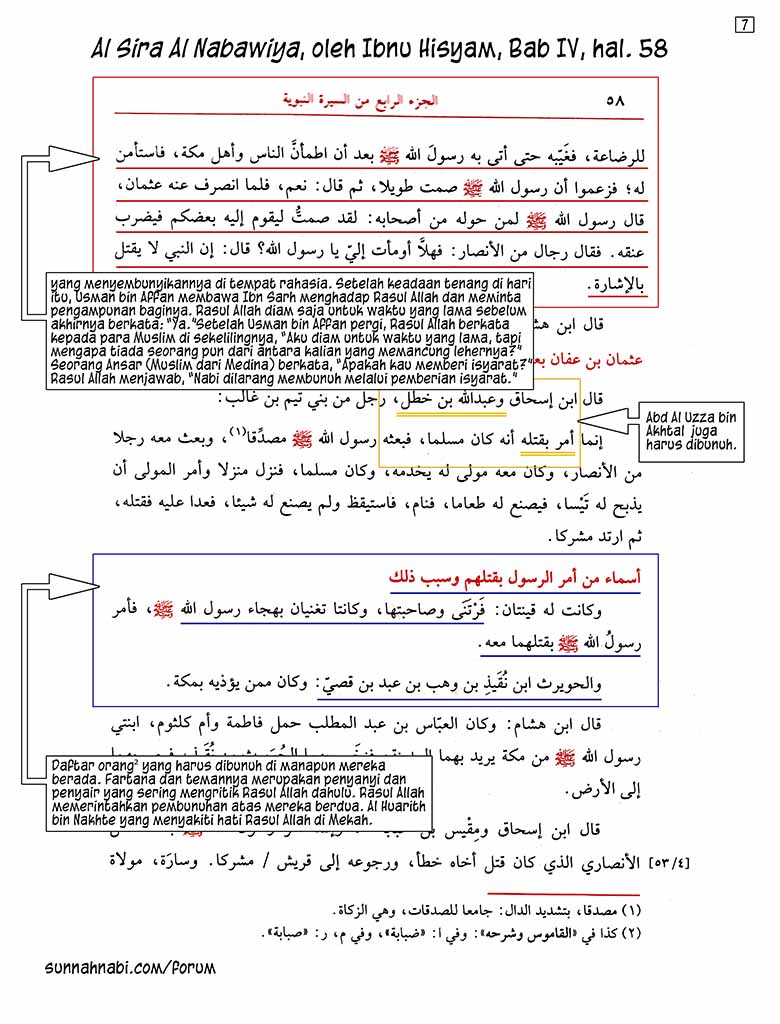 7
Al Sira Al Nabawiya, oleh Ibnu Hisyam, Bab IV, hal. 58
٥٨ الجزء الرابع من السيرة النبوية
للرضاعة، فغَيّبه حتى أتى به رسولَ الله ﷺ بعد أن اطمأنَّ الناس وأهل مكة، فاستأمن
له؛ فزعموا أن رسول الله ﷺ صمت طويلا، ثم قال: نعم، فلما انصرف عنه عثمان،
قال رسول الله ﷺ لمن حوله من أصحابه: لقد صمتُّ ليقوم إليه بعضكم فيضرب
عنقه. فقال رجال من الأنصار: فهلَّا أومأت إليّ يا رسول الله؟ قال: إن النبي لا يقتل
بالإشارة.
yang menyembunyikannya di tempat rahasia. Setelah keadaan tenang di hari
itu, Usman bin Affan membawa Ibn Sarh menghadap Rasul Allah dan meminta
pengampunan baginya. Rasul Allah diam saja untuk waktu yang lama sebelum
akhirnya berkata: "Ya."Setelah Usman bin Affan pergi, Rasul Allah berkata
kepada para Muslim di sekelilingnya, "Aku diam untuk waktu yang lama, tapi
mengapa tiada seorang pun dari antara kalian yang memancung lehernya?"
Seorang Ansar (Muslim dari Medina) berkata, "Apakah kau memberi isyarat?"
Rasul Allah menjawab, "Nabi dilarang membunuh melalui pemberian isyarat."
قال ابن
عثمان بن عفان
قال ابن إسحاق وعبدالله بن خطل، رجل من بني تيم بن غالب:
Abd Al Uzza bin
Akhtal juga
harus dibunuh.
إنما أمر بقتله أنه كان مسلما، فبعثه رسول الله ﷺ مصدِّقا(١)، وبعث معه رجلا
من الأنصار، وكان معه مولى له يخدمه، وكان مسلما، فنزل منزلا وأمر المولى أن
يذبح له تَيْسا، فيصنع له طعاما، فنام، فاستيقظ ولم يصنع له شيئا، فعدا عليه فقتله،
ثم ارتد مشركا.
أسماء من أمر الرسول بقتلهم وسبب ذلك
وكانت له قينتان: فَرْتَنَى وصاحبتها، وكانتا تغنيان بهجاء رسول الله ﷺ، فأمر
رسولُ الله ﷺ بقتلهما معه.
والحويرث ابن نُقَيذِ بن وهب بن عبد بن قصيّ: وكان ممن يؤذيه بمكة.
قال ابن هشام: وكان العبّاس بن عبد المطلب حمل فاطمة وأم كلثوم، ابنتي
رسول الله ﷺ من مكة يريد بهما
Daftar orang² yang harus dibunuh di manapun mereka
berada. Fartana dan temannya merupakan penyanyi dan
penyair yang sering mengritik Rasul Allah dahulu. Rasul Allah
memerintahkan pembunuhan atas mereka berdua. Al Huarith
bin Nakhte yang menyakiti hati Rasul Allah di Mekah.
إلى الأرض.
قال ابن إسحاق ومِقْيس بن
[٥٣/٤] الأنصاري الذي كان قتل أخاه خطأ، ورجوعه إلى قريش / مشركا. وسارَة، مولاة
(١) مصدقا، بتشديد الدال: جامعا للصدقات، وهي الزكاة.
(٢) كذا في «القاموس وشرحه»: وفي ا: «ضبابة»، وفي م، ر: «صبابة».
sunnahnabi.com/forum